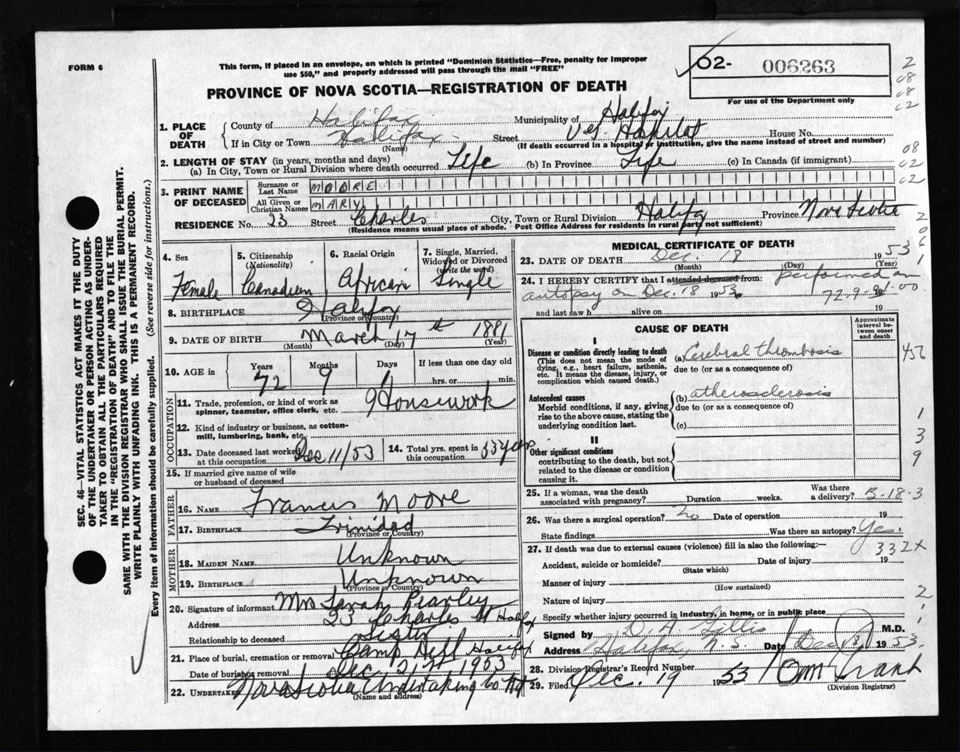 FORM 6
This form, if placed in an envelope, on which is printed "Dominion Statistics—Free, penalty for improper
use $50," and properly addressed will pass through the mail "FREE"
02- 006263
For use of the Department only
PROVINCE OF NOVA SCOTIA—REGISTRATION OF DEATH
1. PLACE OF DEATH
County of Halifax Municipality of Halifax
If in City or Town Halifax Street V.G. Hospital House No.
(Name) (If death occurred in a hospital or institution, give the name instead of street and number)
2. LENGTH OF STAY (in years, months and days)
(a) In City, Town or Rural Division where death occurred Life (b) In Province Life (c) In Canada (if immigrant)
3. PRINT NAME OF DECEASED
Surname or Last Name MOORE
All Given or Christian Names MARY
RESIDENCE No. 23 Street Charles City, Town or Rural Division Halifax Province Nova Scotia
(Residence means usual place of abode. Post Office Address for residents in rural parts not sufficient)
4. Sex Female
5. Citizenship (Nationality) Canadian
6. Racial Origin African
7. Single, Married, Widowed or Divorced (write the word) Single
8. BIRTHPLACE Halifax
(Province or Country)
9. DATE OF BIRTH March 17th 1881
(Month) (Day) (Year)
10. AGE in Years 72 Months 9 Days 1 If less than one day old hrs. or min.
OCCUPATION
11. Trade, profession, or kind of work as spinner, teamster, office clerk, etc. Housework
12. Kind of industry or business, as cotton-mill, lumbering, bank, etc.
13. Date deceased last worked at this occupation Dec 11/53
14. Total yrs. spent in this occupation 53 years
15. If married give name of wife or husband of deceased
FATHER
16. NAME Francis Moore
17. BIRTHPLACE Trinidad
(Province or Country)
MOTHER
18. MAIDEN NAME Unknown
19. BIRTHPLACE Unknown
(Province or Country)
20. Signature of informant Mrs Sarah
Address 23 Charles St Halifax
Relationship to deceased Sister
21. Place of burial, cremation or removal Camp Hill Halifax
Date of burial or removal Dec 21st 1953
22. UNDERTAKER Nova Scotia Undertaking Co Ltd
(Name and address)
MEDICAL CERTIFICATE OF DEATH
23. DATE OF DEATH Dec. 18 1953
(Month) (Day) (Year)
24. I HEREBY CERTIFY that I attended deceased from: performed an
autopsy on Dec. 18 1953 72-9-01-00
and last saw h alive on 19
CAUSE OF DEATH
Approximate interval between onset and death
I
Disease or condition directly leading to death
(This does not mean the mode of dying, e.g., heart failure, asthenia, etc. It means the disease, injury, or complication which caused death.)
(a) Cerebral thrombosis
due to (or as a consequence of)
Antecedent causes
Morbid conditions, if any, giving rise to the above cause, stating the underlying condition last.
(b) atherosclerosis
due to (or as a consequence of)
(c)
II
Other significant conditions
contributing to the death, but not related to the disease or condition causing it.
25. If a woman, was the death associated with pregnancy? Duration weeks. Was there a delivery? 5-18-3
26. Was there a surgical operation? No Date of operation 19
State findings Was there an autopsy? Yes.
27. If death was due to external causes (violence) fill in also the following:— 332X
Accident, suicide or homicide? Date of injury 19
(State which)
Manner of injury
(How sustained)
Nature of injury
Specify whether injury occurred in industry, in home, or in public place
Signed by D. J. Gillis M.D.
Address Halifax, N.S. Date Dec 18, 1953
28. Division Registrar's Record Number
29. Filed Dec. 19 1953
(Division Registrar)
SEC. 46—VITAL STATISTICS ACT MAKES IT THE DUTY
OF THE UNDERTAKER OR PERSON ACTING AS UNDER-
TAKER TO OBTAIN ALL THE PARTICULARS REQUIRED
IN THE "REGISTRATION OF DEATH" AND TO FILE THE
SAME WITH THE DIVISION REGISTRAR WHO SHALL ISSUE THE BURIAL PERMIT.
WRITE PLAINLY WITH UNFADING INK. THIS IS A PERMANENT RECORD.
Every item of information should be carefully supplied. (See reverse side for instructions.)